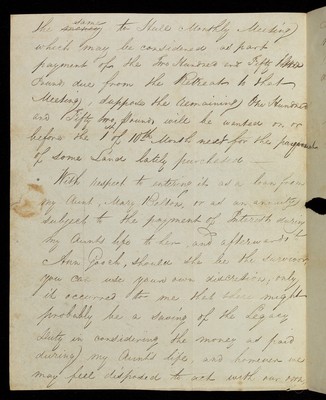 the same to Hull Monthly Meeting
which may be considered as part
payment of the Two Hundred and Fifty
Pound due from the Retreat to that
Meeting, suppose the remaining One Hundred
and Fifty two pounds will be wanted on or
before the 1st of 10th Month next for the payment
of some Land lately purchased —
With respect to entering it as a loan from
my Aunt, Mary or as an annuity
subject to the payment of Interest during
my Aunts life to her and afterwards to
Ann should she be the survivor
you can use your own discretion, only
it occurred to me that there might
probably be a saving of the Legacy
Duty in considering the money as paid
during my Aunts life, and however we
may feel disposed to act with our own